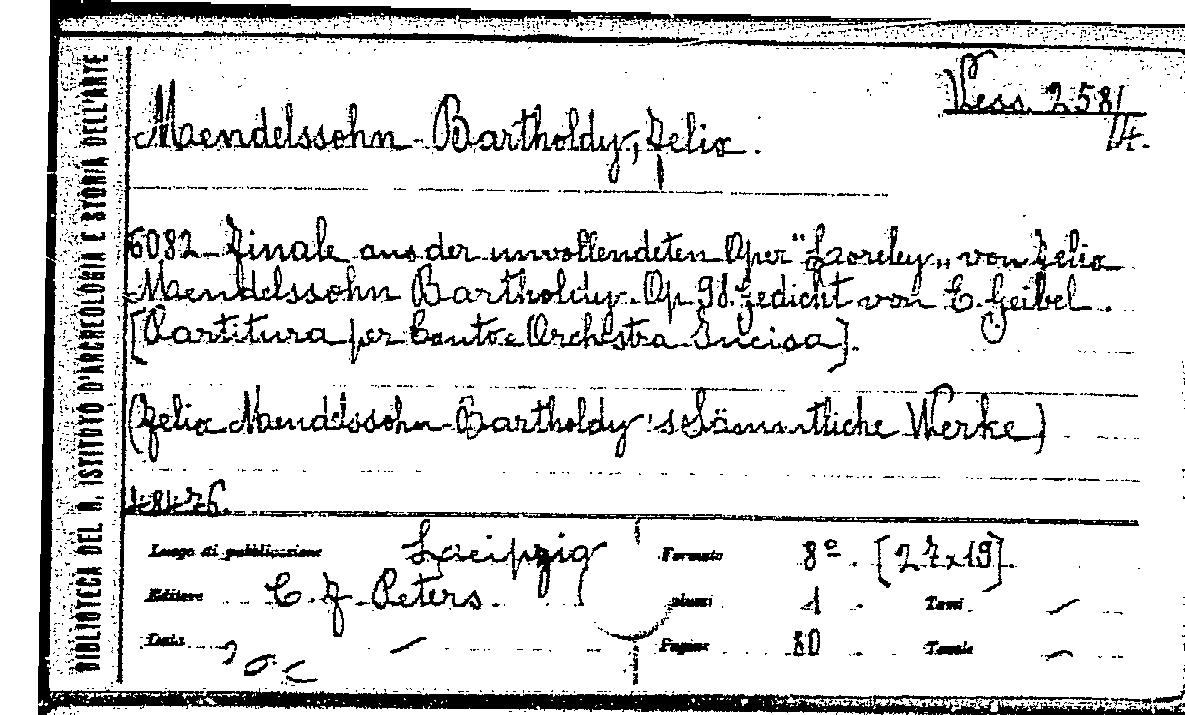 BIBLIOTECA DEL R. ISTITUTO D'ARCHEOLOGIA E STORIA DELL'ARTE
Vess. 258/14.
Mendelssohn-Bartholdy, Felix.
6082 - Finale aus der unvollendeten Oper "Loreley„ von Felix
Mendelssohn Bartholdy. Op. 98. Gedicht von E. Geibel.
[Partitura per Canto e Orchestra Incisa].
(Felix Mendelssohn-Bartholdy's Sämmtliche Werke)
48476.
Luogo di pubblicazione Leipzig Formato 8º. [27x19].
Editore C. F. Peters. Volumi 1. Tomi —
Data — Pagine 80 Tavole —